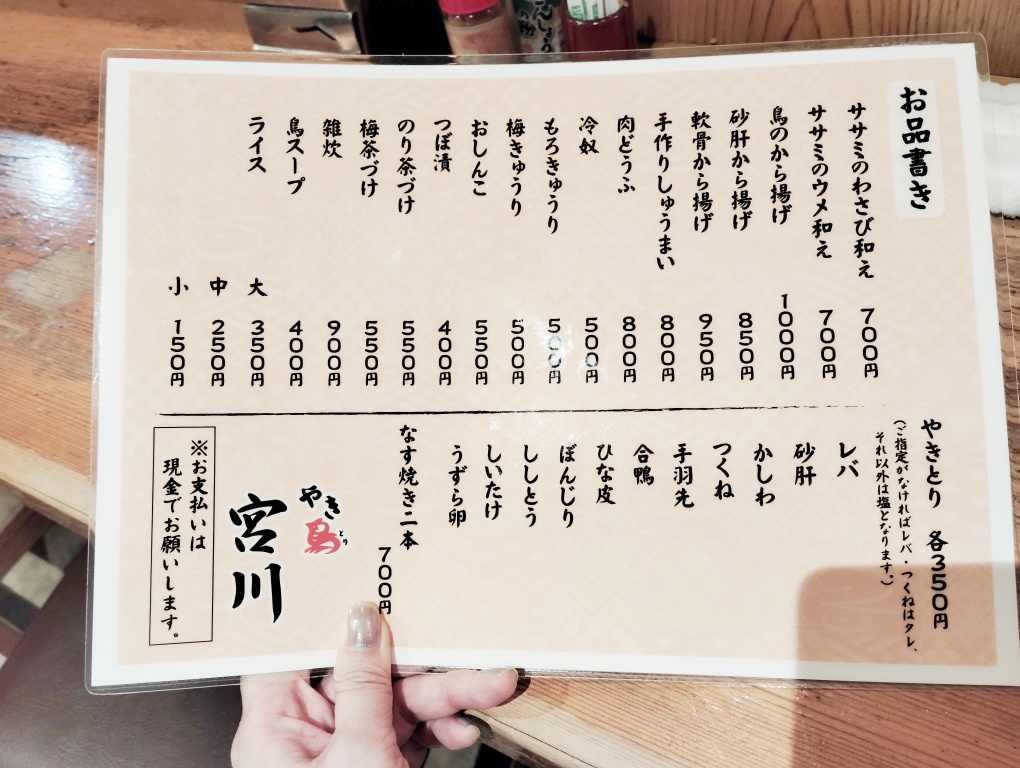 お品書き
ササミのわさび和え 700円
ササミのウメ和え 700円
鳥のから揚げ 1000円
砂肝から揚げ 850円
軟骨から揚げ 950円
手作りしゅうまい 800円
肉どうふ 800円
冷奴 500円
もろきゅうり 500円
梅きゅうり 500円
おしんこ 550円
つぼ漬 400円
のり茶づけ 550円
梅茶づけ 550円
雑炊 900円
鳥スープ 400円
ライス 大 350円
中 250円
小 150円
やきとり 各350円
(ご指定がなければレバ・つくねはタレ、
それ以外は塩となります。)
レバ
砂肝
かしわ
つくね
手羽先
合鴨
ひな皮
ぼんじり
ししとう
しいたけ
うずら卵
なす焼き二本 700円
やき鳥
とり
宮川
※お支払いは
現金でお願いします。